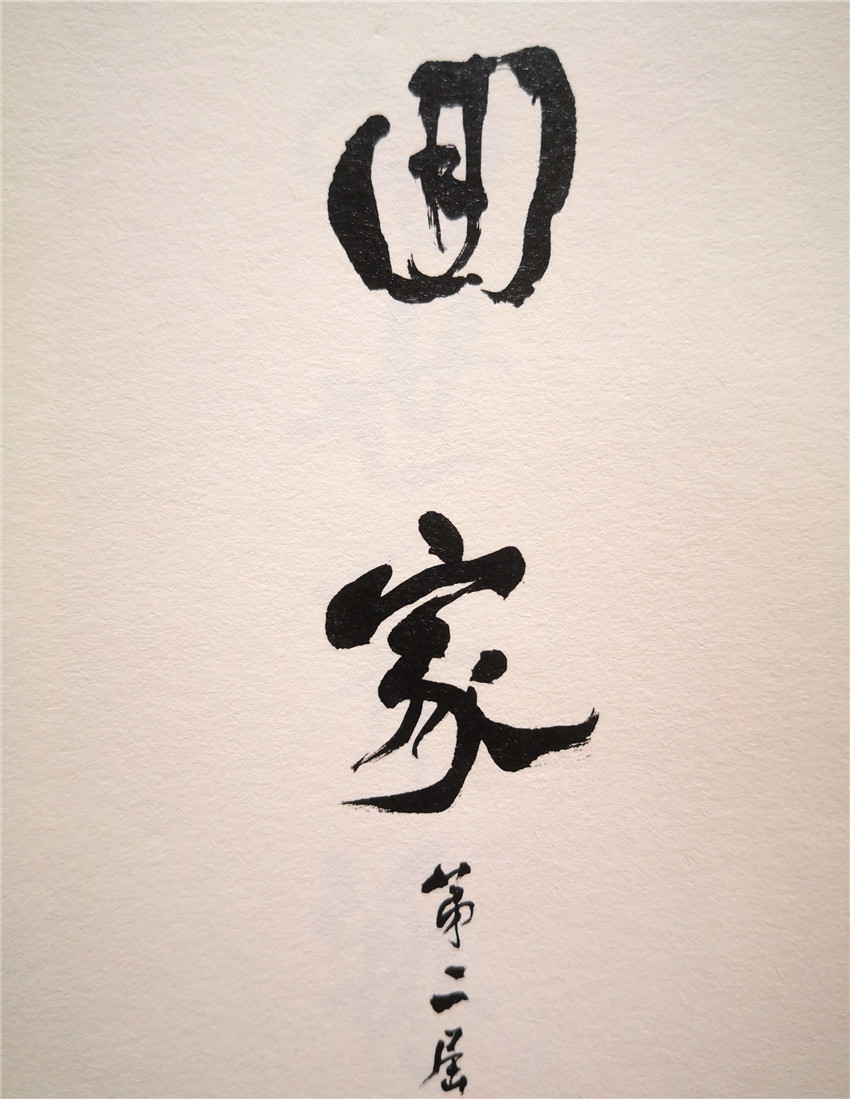 回家
第二届